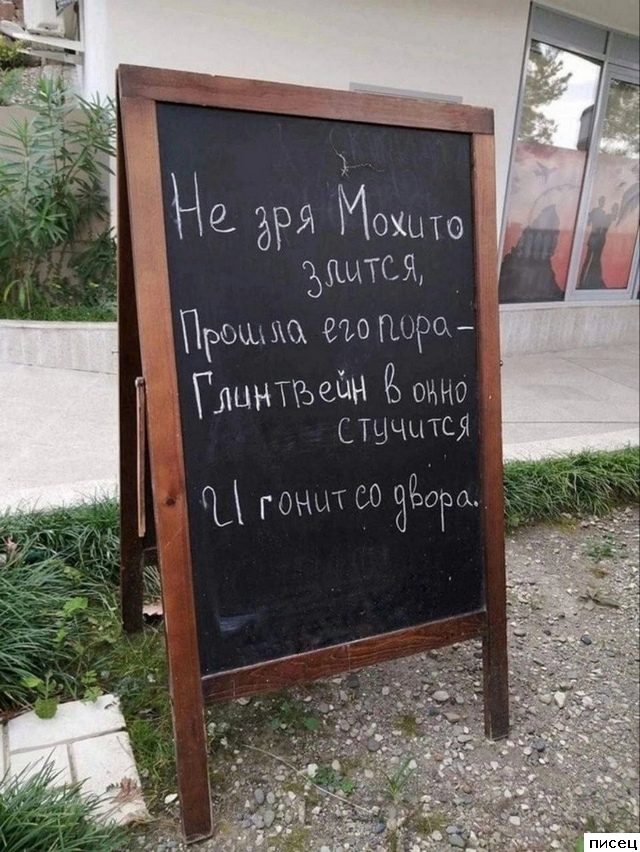 Не зря Мохито
злится,
Прошла его пора –
Глинтвейн в окно
стучится
И гонит со двора.
писец